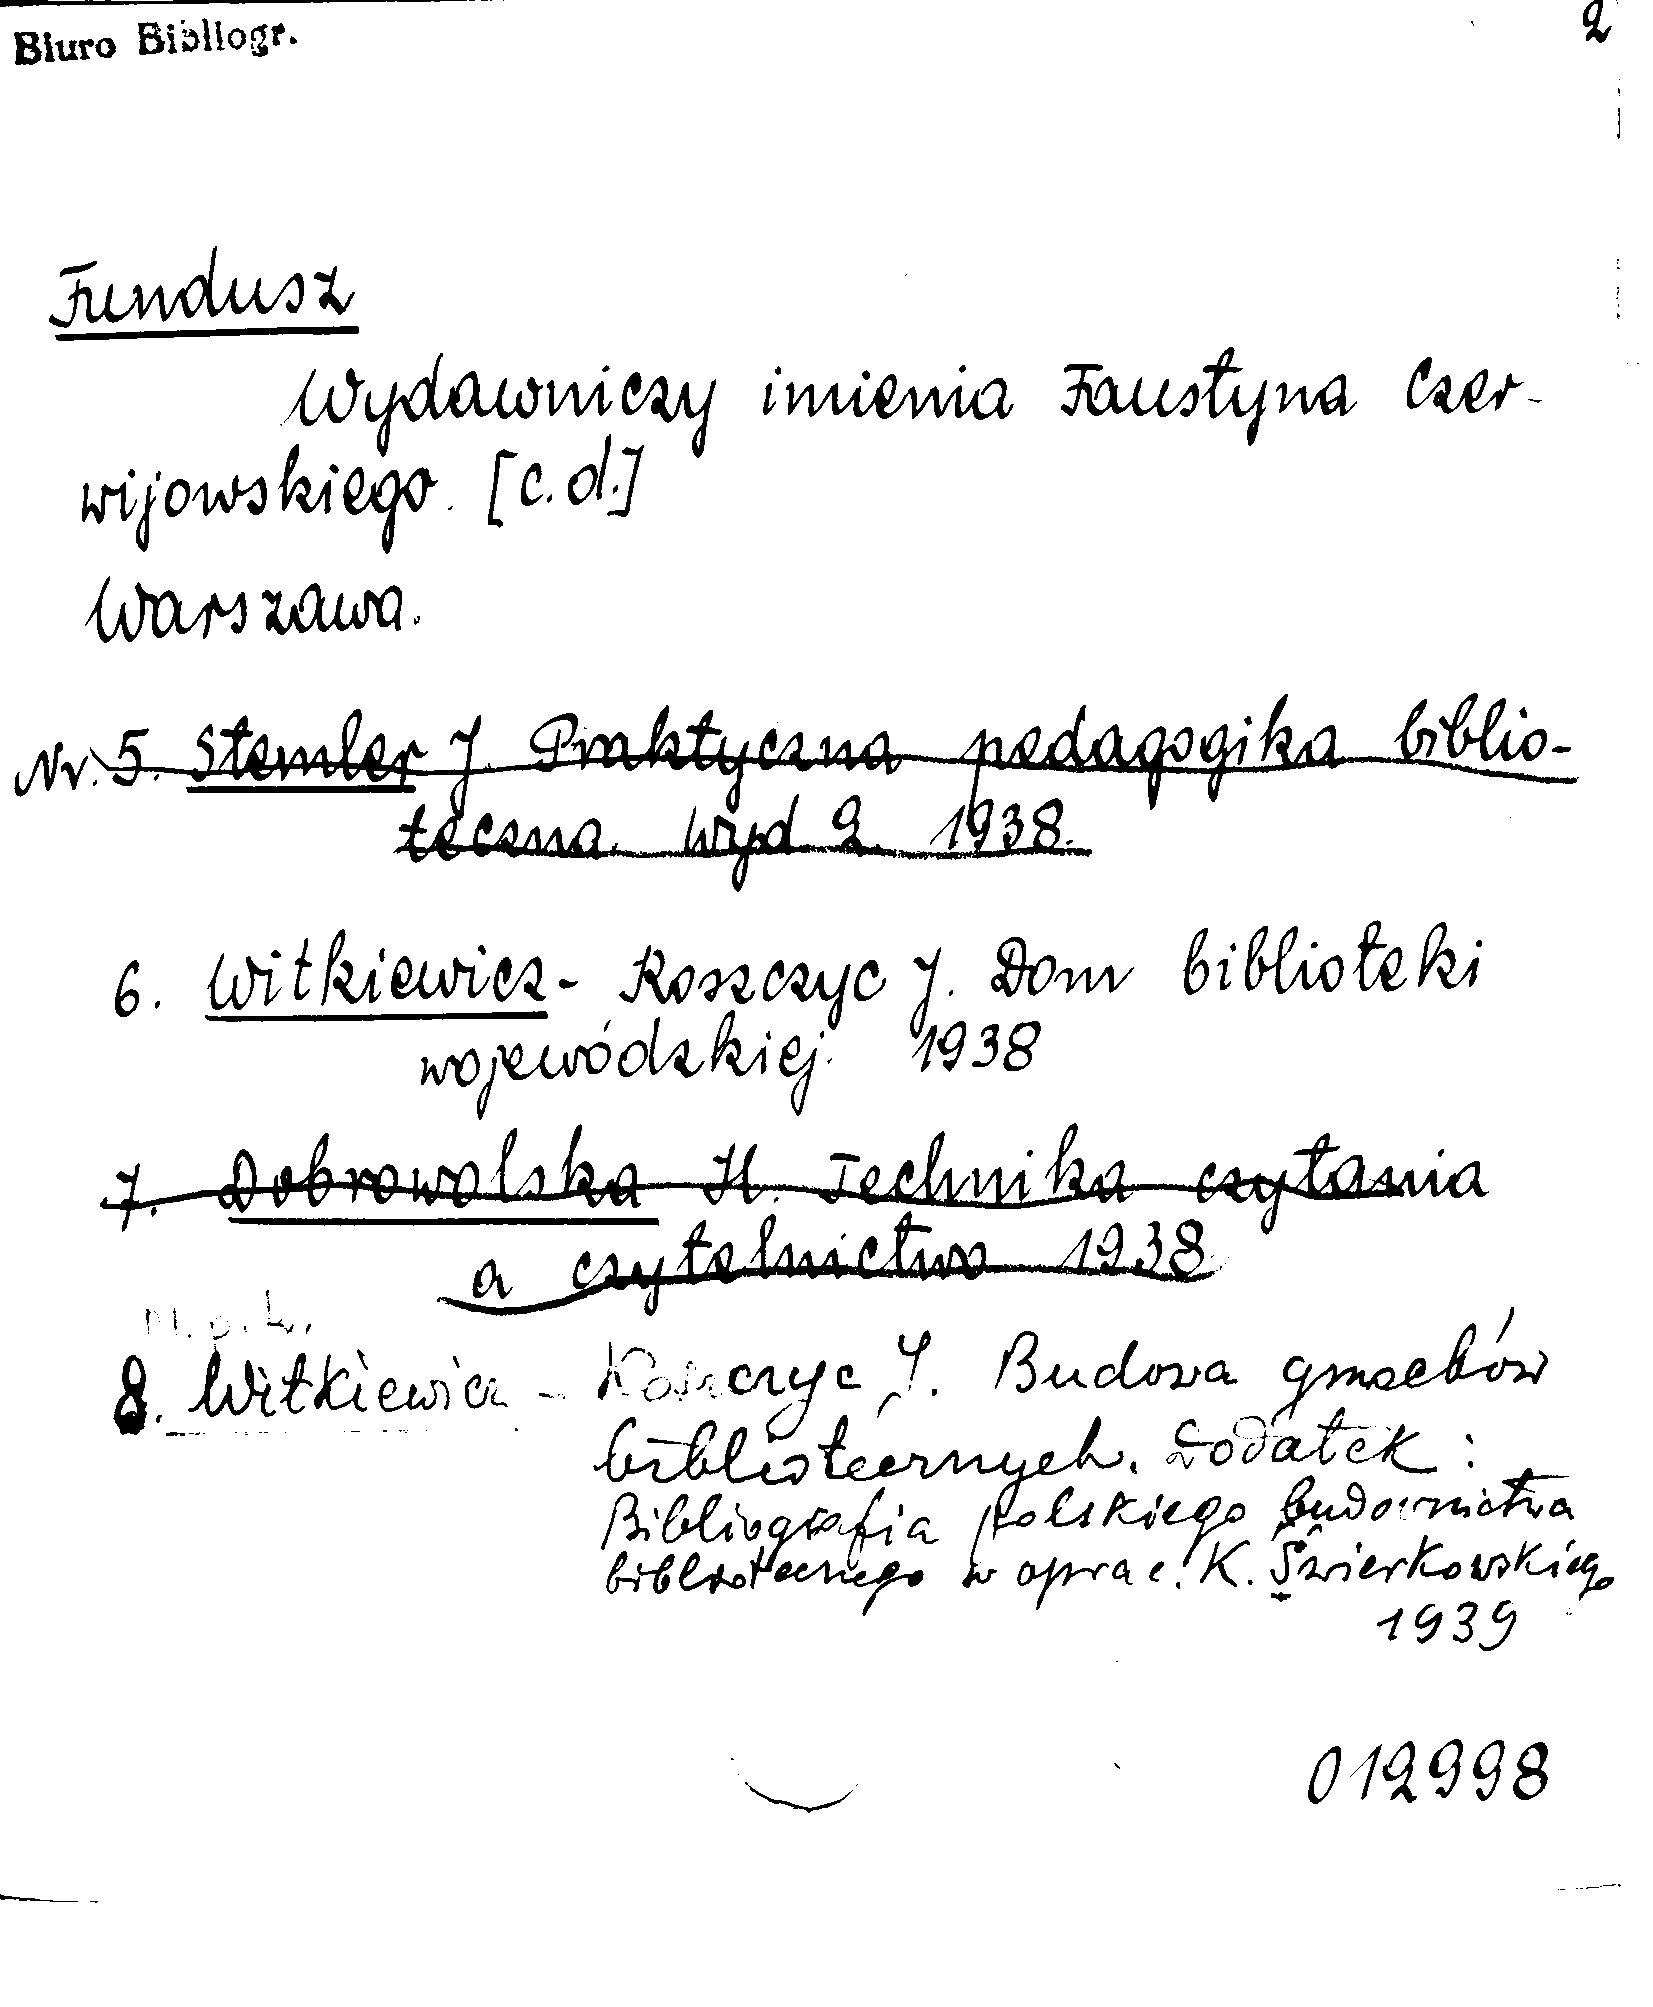 Biuro Bibliogr.
2
Fundusz
Wydawniczy imienia Faustyna Czer-
wijowskiego. [c.d.]
Warszawa.
Nr. 5. Stemler J. Praktyczna pedagogika biblio-
teczna. Wyd 2. 1938.
6. Witkiewicz - Koszczyc J. Dom biblioteki
wojewódzkiej. 1938
7. Dobrowolska H. Technika czytania
a czytelnictwo 1938
8. Witkiewicz - Koszczyc J. Budowa gmachów
bibliotecznych. Dodatek :
Bibliografia polskiego budownictwa
bibliotecznego w oprac. K. Świerkowskiego
1939
012998